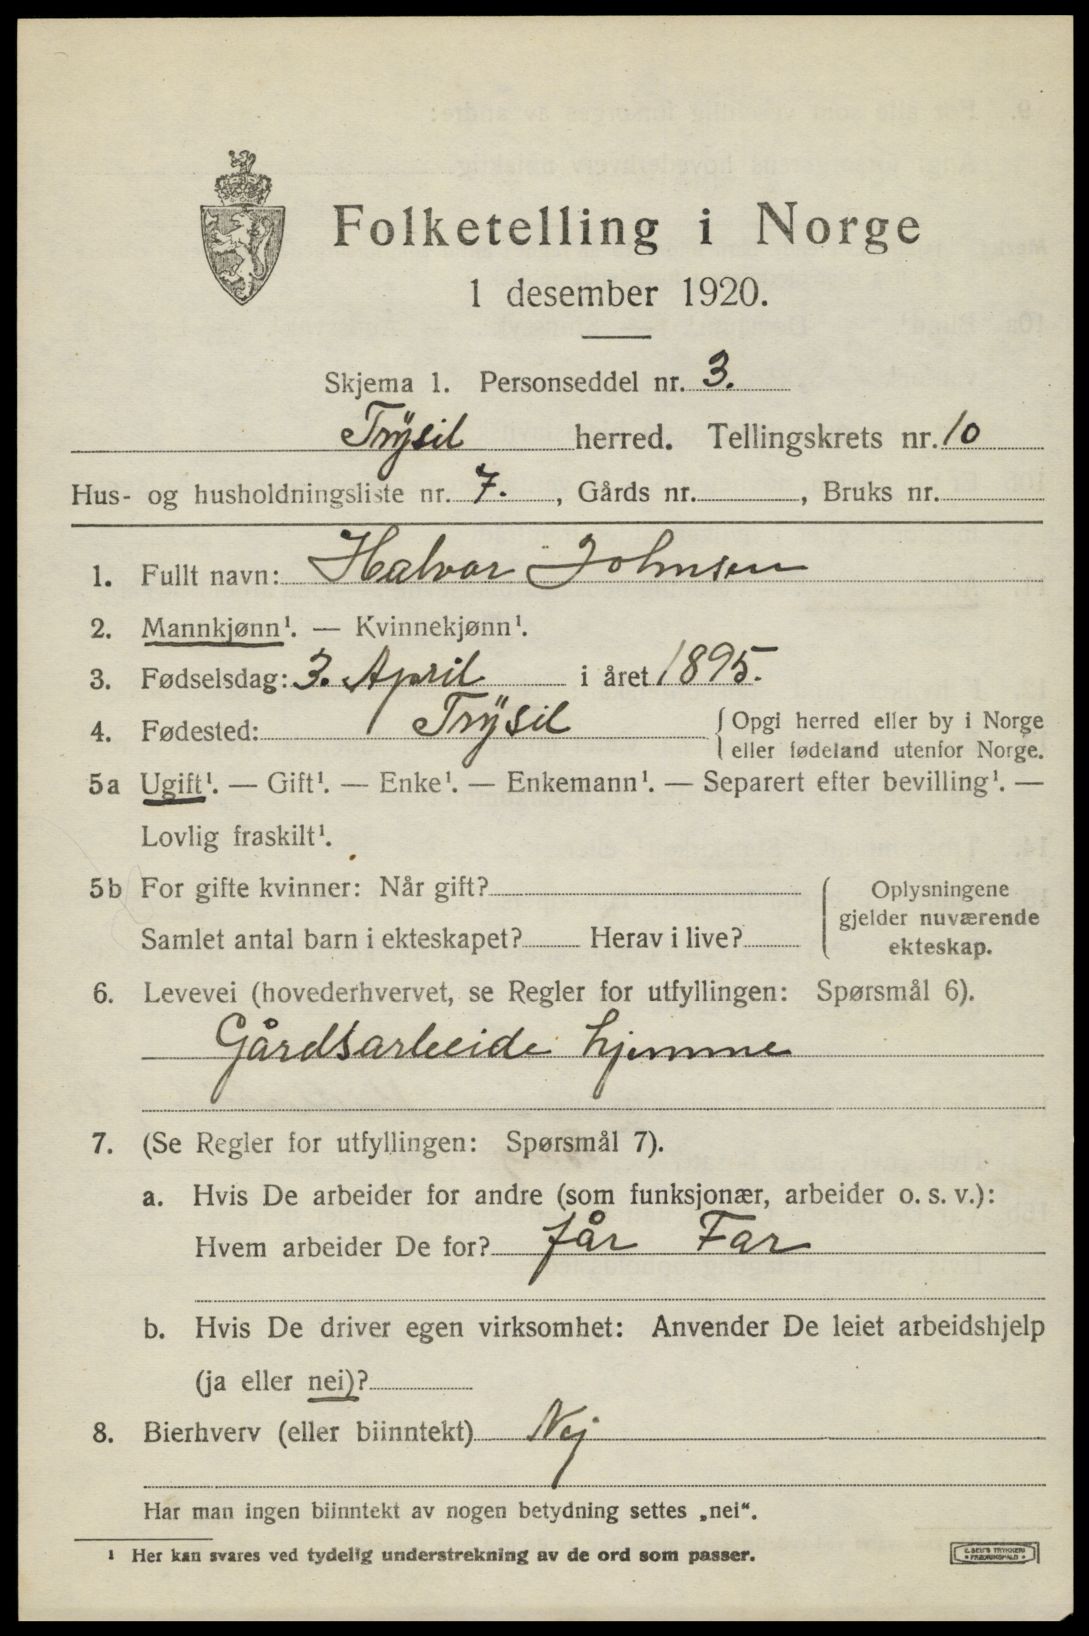 Folketelling i Norge
1 desember 1920.
Skjema 1. Personseddel nr. 3.
Trysil herred. Tellingskrets nr. 10
Hus- og husholdningsliste nr. 7. , Gårds nr. , Bruks nr.
1. Fullt navn: Halvor Johnsen
2. Mannkjønn¹. — Kvinnekjønn¹.
3. Fødselsdag: 3. April i året 1895.
4. Fødested: Trysil { Opgi herred eller by i Norge
eller fødeland utenfor Norge.
5a Ugift¹. — Gift¹. — Enke¹. — Enkemann¹. — Separert efter bevilling¹. —
Lovlig fraskilt¹.
5b For gifte kvinner: Når gift?
Samlet antal barn i ekteskapet? Herav i live?
Oplysningene
gjelder nuværende
ekteskap.
6. Levevei (hovederhvervet, se Regler for utfyllingen: Spørsmål 6).
Gårdsarbeide hjemme
7. (Se Regler for utfyllingen: Spørsmål 7).
a. Hvis De arbeider for andre (som funksjonær, arbeider o. s. v.):
Hvem arbeider De for? får Far
b. Hvis De driver egen virksomhet: Anvender De leiet arbeidshjelp
(ja eller nei)?
8. Bierhverv (eller biinntekt) Nej
Har man ingen biinntekt av nogen betydning settes „nei“.
¹ Her kan svares ved tydelig understrekning av de ord som passer.